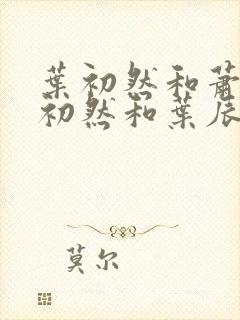 葉初然和蕭
初然和葉辰
莫尔